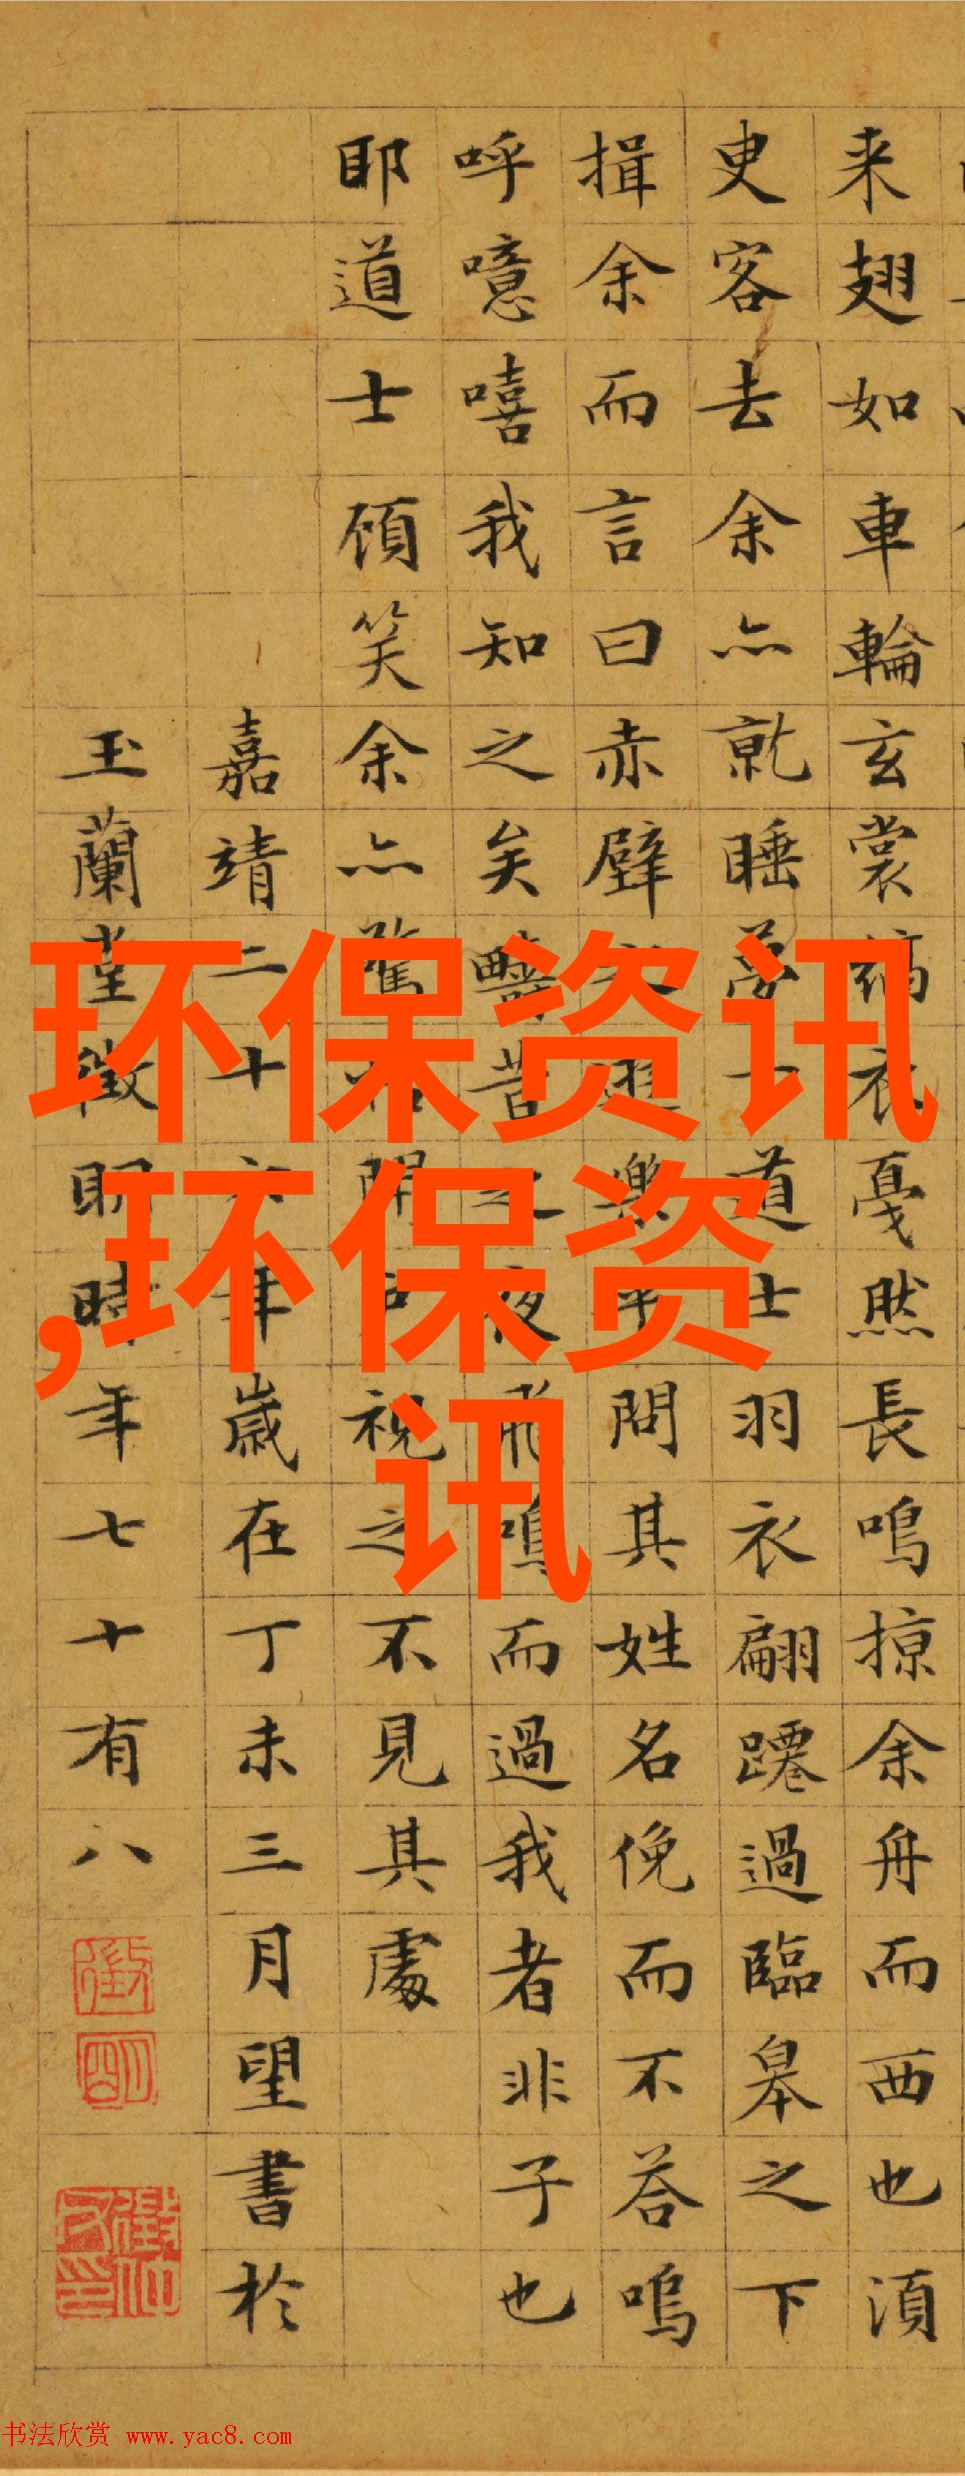 来翅如車輪玄裳縞衣戛然長鳴掠余舟而西也湏
臾客去余亦就睡夢一道士羽衣翩躚過臨皋之下
揖余而言曰赤壁之遊樂乎問其姓名俛而不荅嗚
呼噫嘻我知之矣疇昔之夜飛鳴而過我者非子也
耶道士顧笑余亦驚悟開戶視之不見其處
嘉靖二十六年歲在丁未三月望書於
玉蘭堂徵明時年七十有八
环保资讯
,环保资
讯
书法欣赏 www.yac8.com